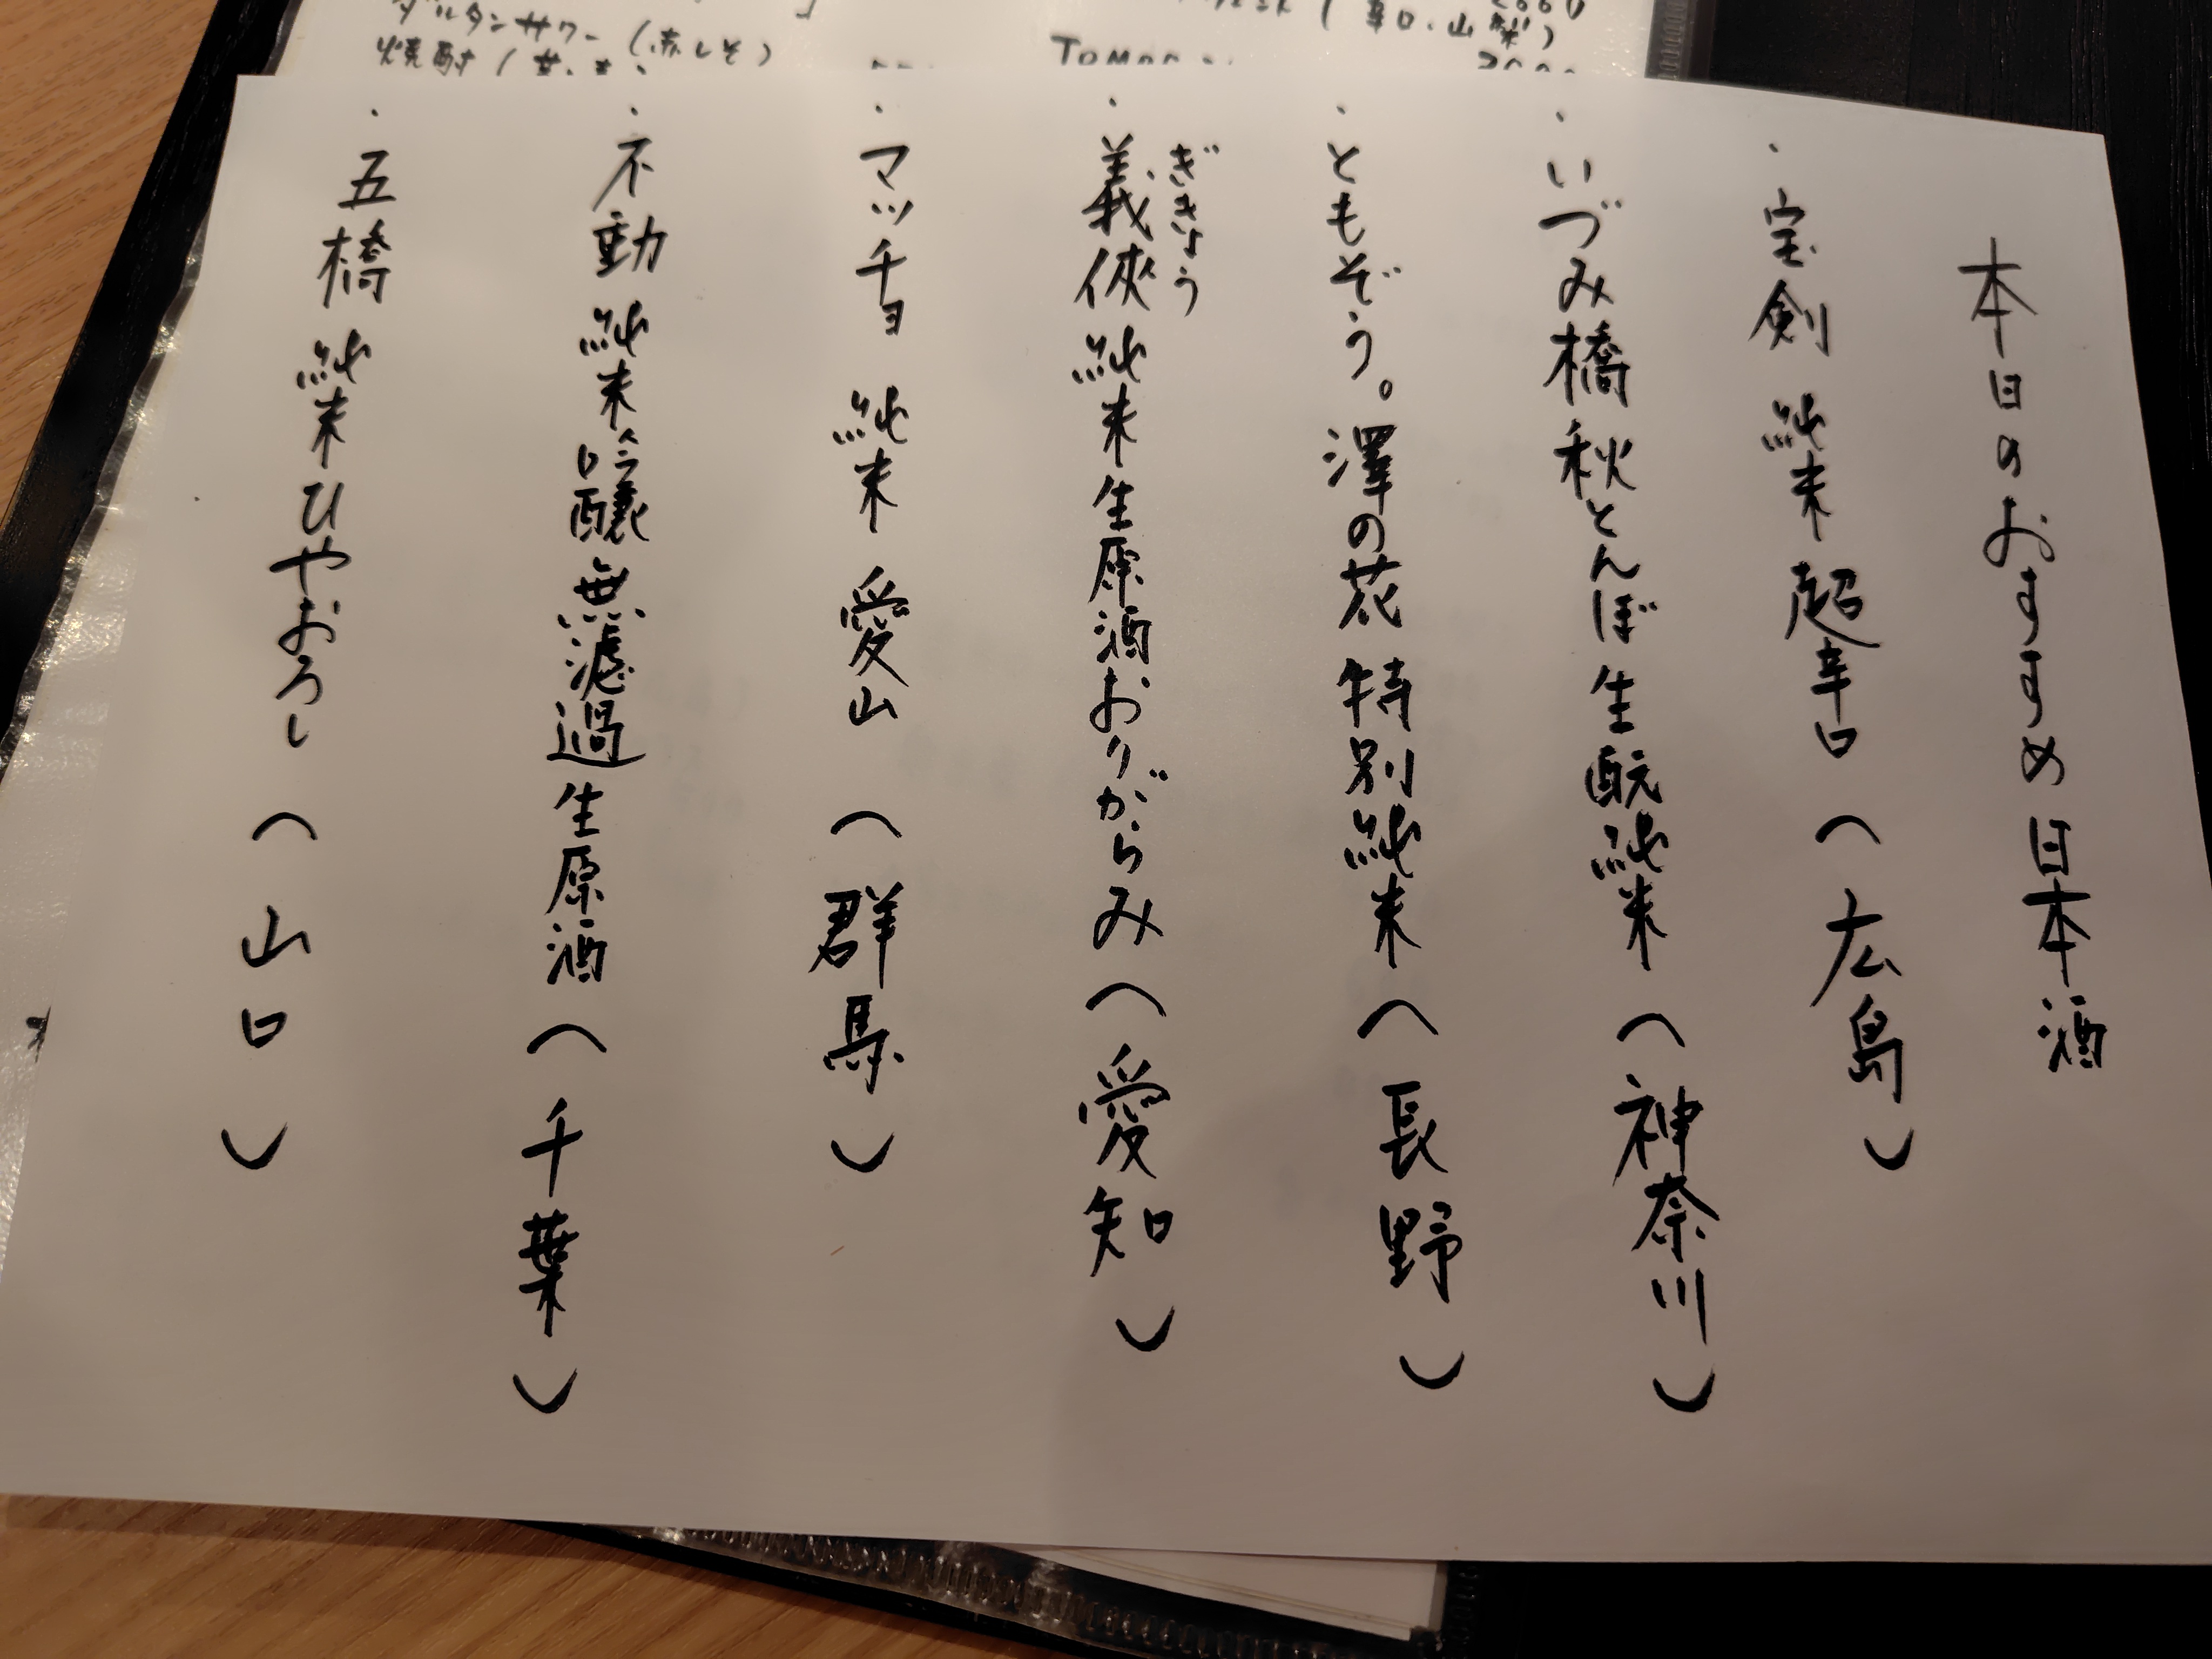 ダルタンサワー（赤しそ）
焼酎
（辛口、山梨）
本日のおすすめ日本酒
・宝剣 純米 超辛口（広島）
・いづみ橋 秋とんぼ 生酛純米（神奈川）
・ともぞう。澤の花 特別純米（長野）
ぎきょう
・義侠 純米生原酒おりがらみ（愛知）
・マッチョ 純米 愛山（群馬）
・不動 純米吟醸 無濾過生原酒（千葉）
・五橋 純米ひやおろし（山口）